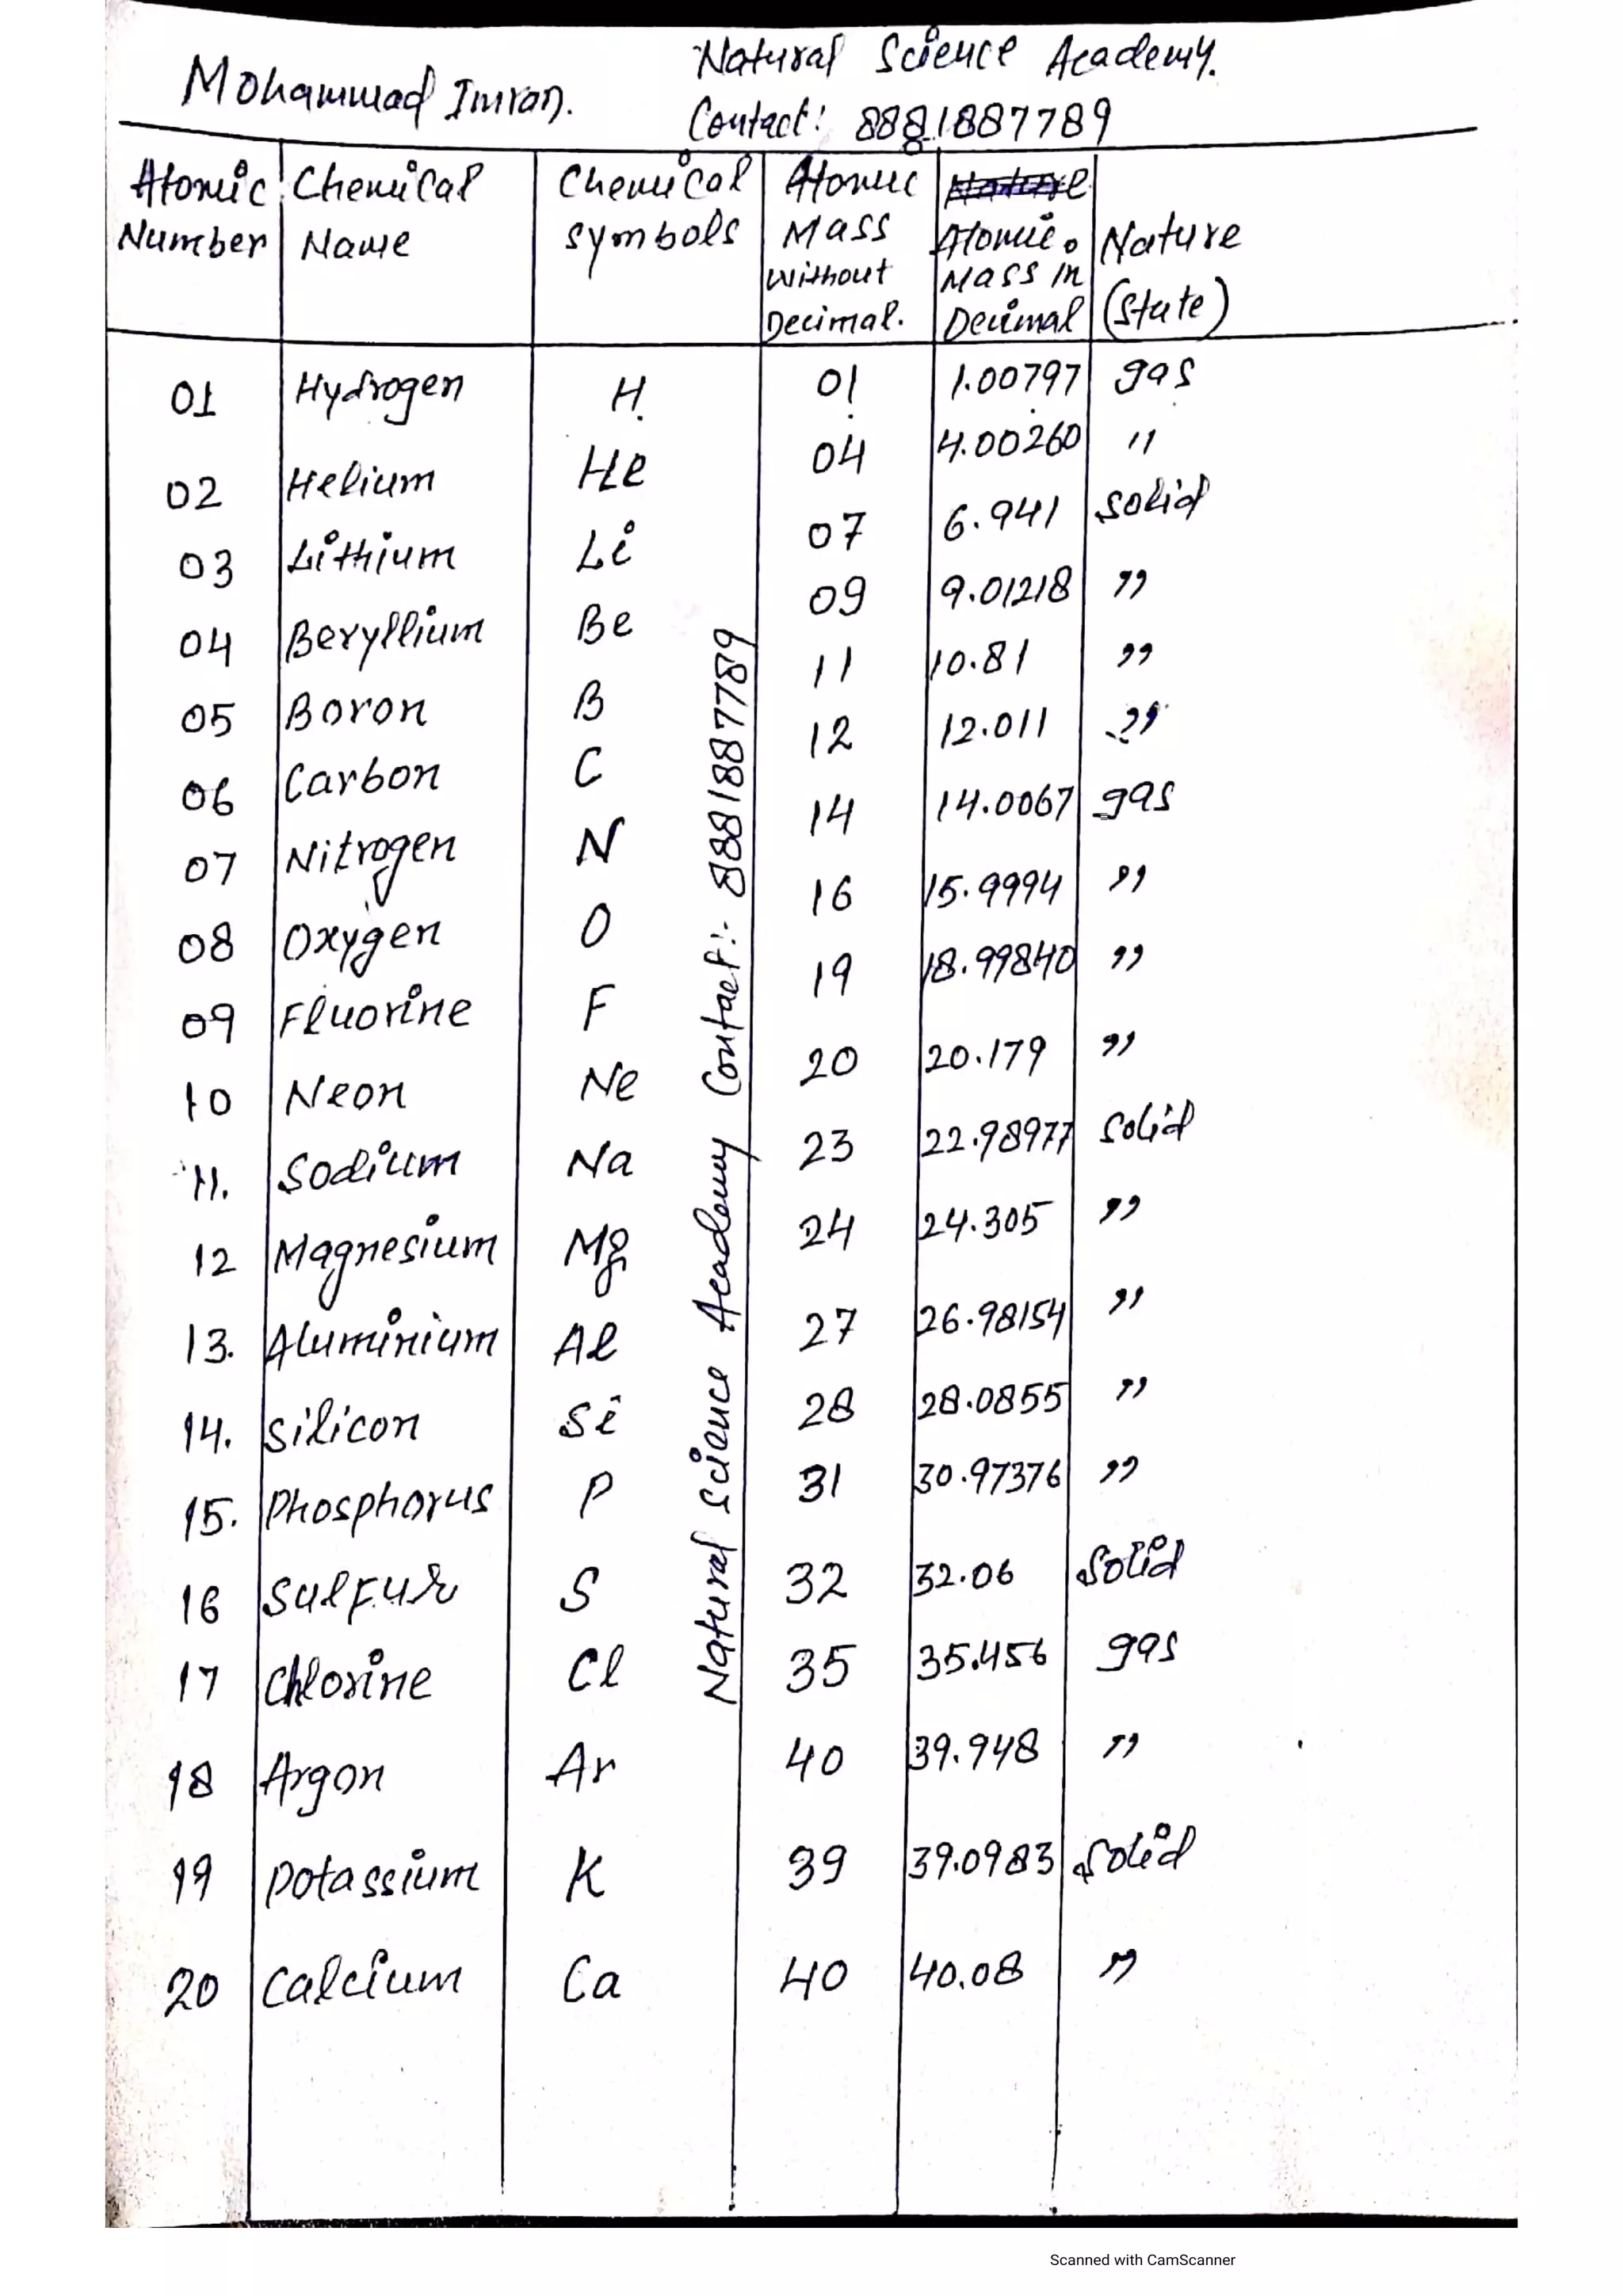 Mohammad Imran.
Natural Science Academy.
Contact: 8881887789
Atomic Number | Chemical Name | Chemical symbols | Atomic Mass without Decimal. | Atomic Mass in Decimal | Nature (State)
01 Hydrogen H 01 1.00797 gas
02 Helium He 04 4.00260 "
03 Lithium Li 07 6.941 solid
04 Beryllium Be 09 9.01218 "
05 Boron B 11 10.81 "
06 Carbon C 12 12.011 "
07 Nitrogen N 14 14.0067 gas
08 Oxygen O 16 15.9994 "
09 Fluorine F 19 18.99840 "
10 Neon Ne 20 20.179 "
11. Sodium Na 23 22.98977 Solid
12 Magnesium Mg 24 24.305 "
13. Aluminium Al 27 26.98154 "
14. Silicon Si 28 28.0855 "
15. Phosphorus P 31 30.97376 "
16 Sulfur S 32 32.06 Solid
17 Chlorine Cl 35 35.456 gas
18 Argon Ar 40 39.948 "
19 Potassium K 39 39.0983 Solid
20 Calcium Ca 40 40.08 "
Natural Science Academy Contact:- 8881887789
Scanned with CamScanner